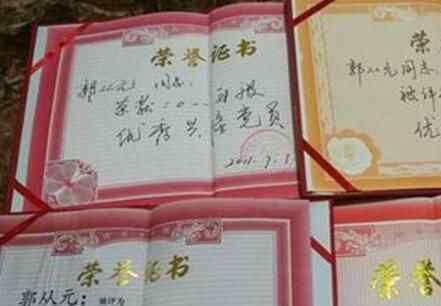 荣誉证书
郭从元 同志:
荣获二〇一一年度
优秀共产党员
2011.7.1
荣
郭从元同志
被评
优
荣誉证书
郭从元:
被评为
荣誉